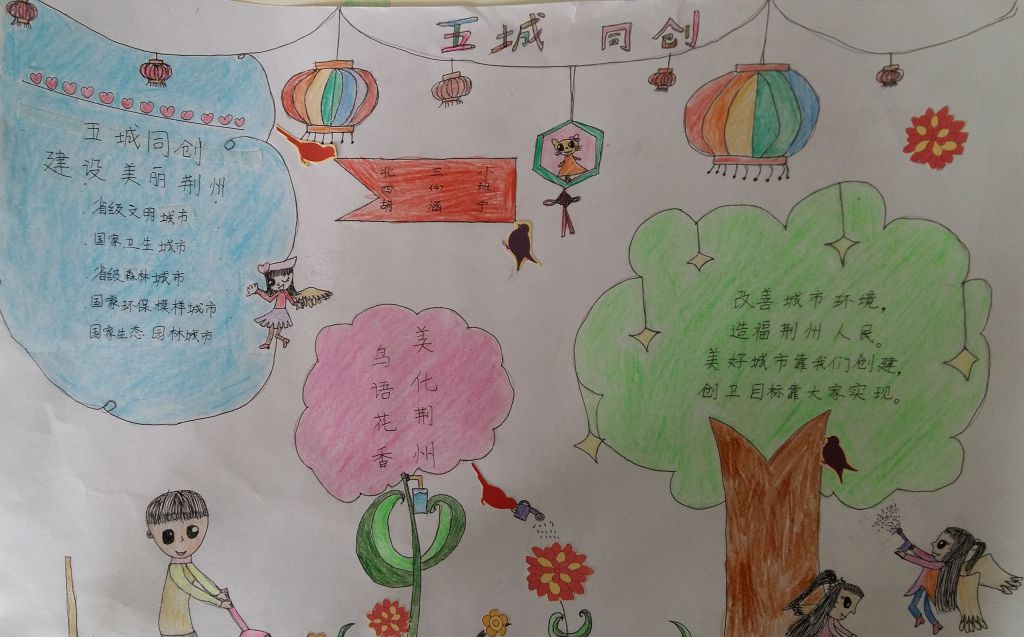 五城同创
五城同创
建设美丽荆州
省级文明城市
国家卫生城市
省级森林城市
国家环保模样城市
国家生态园林城市
北三小
四(6)班
胡涵宁
美化荆州
鸟语花香
改善城市环境，
造福荆州人民。
美好城市靠我们创建，
创卫目标靠大家实现。